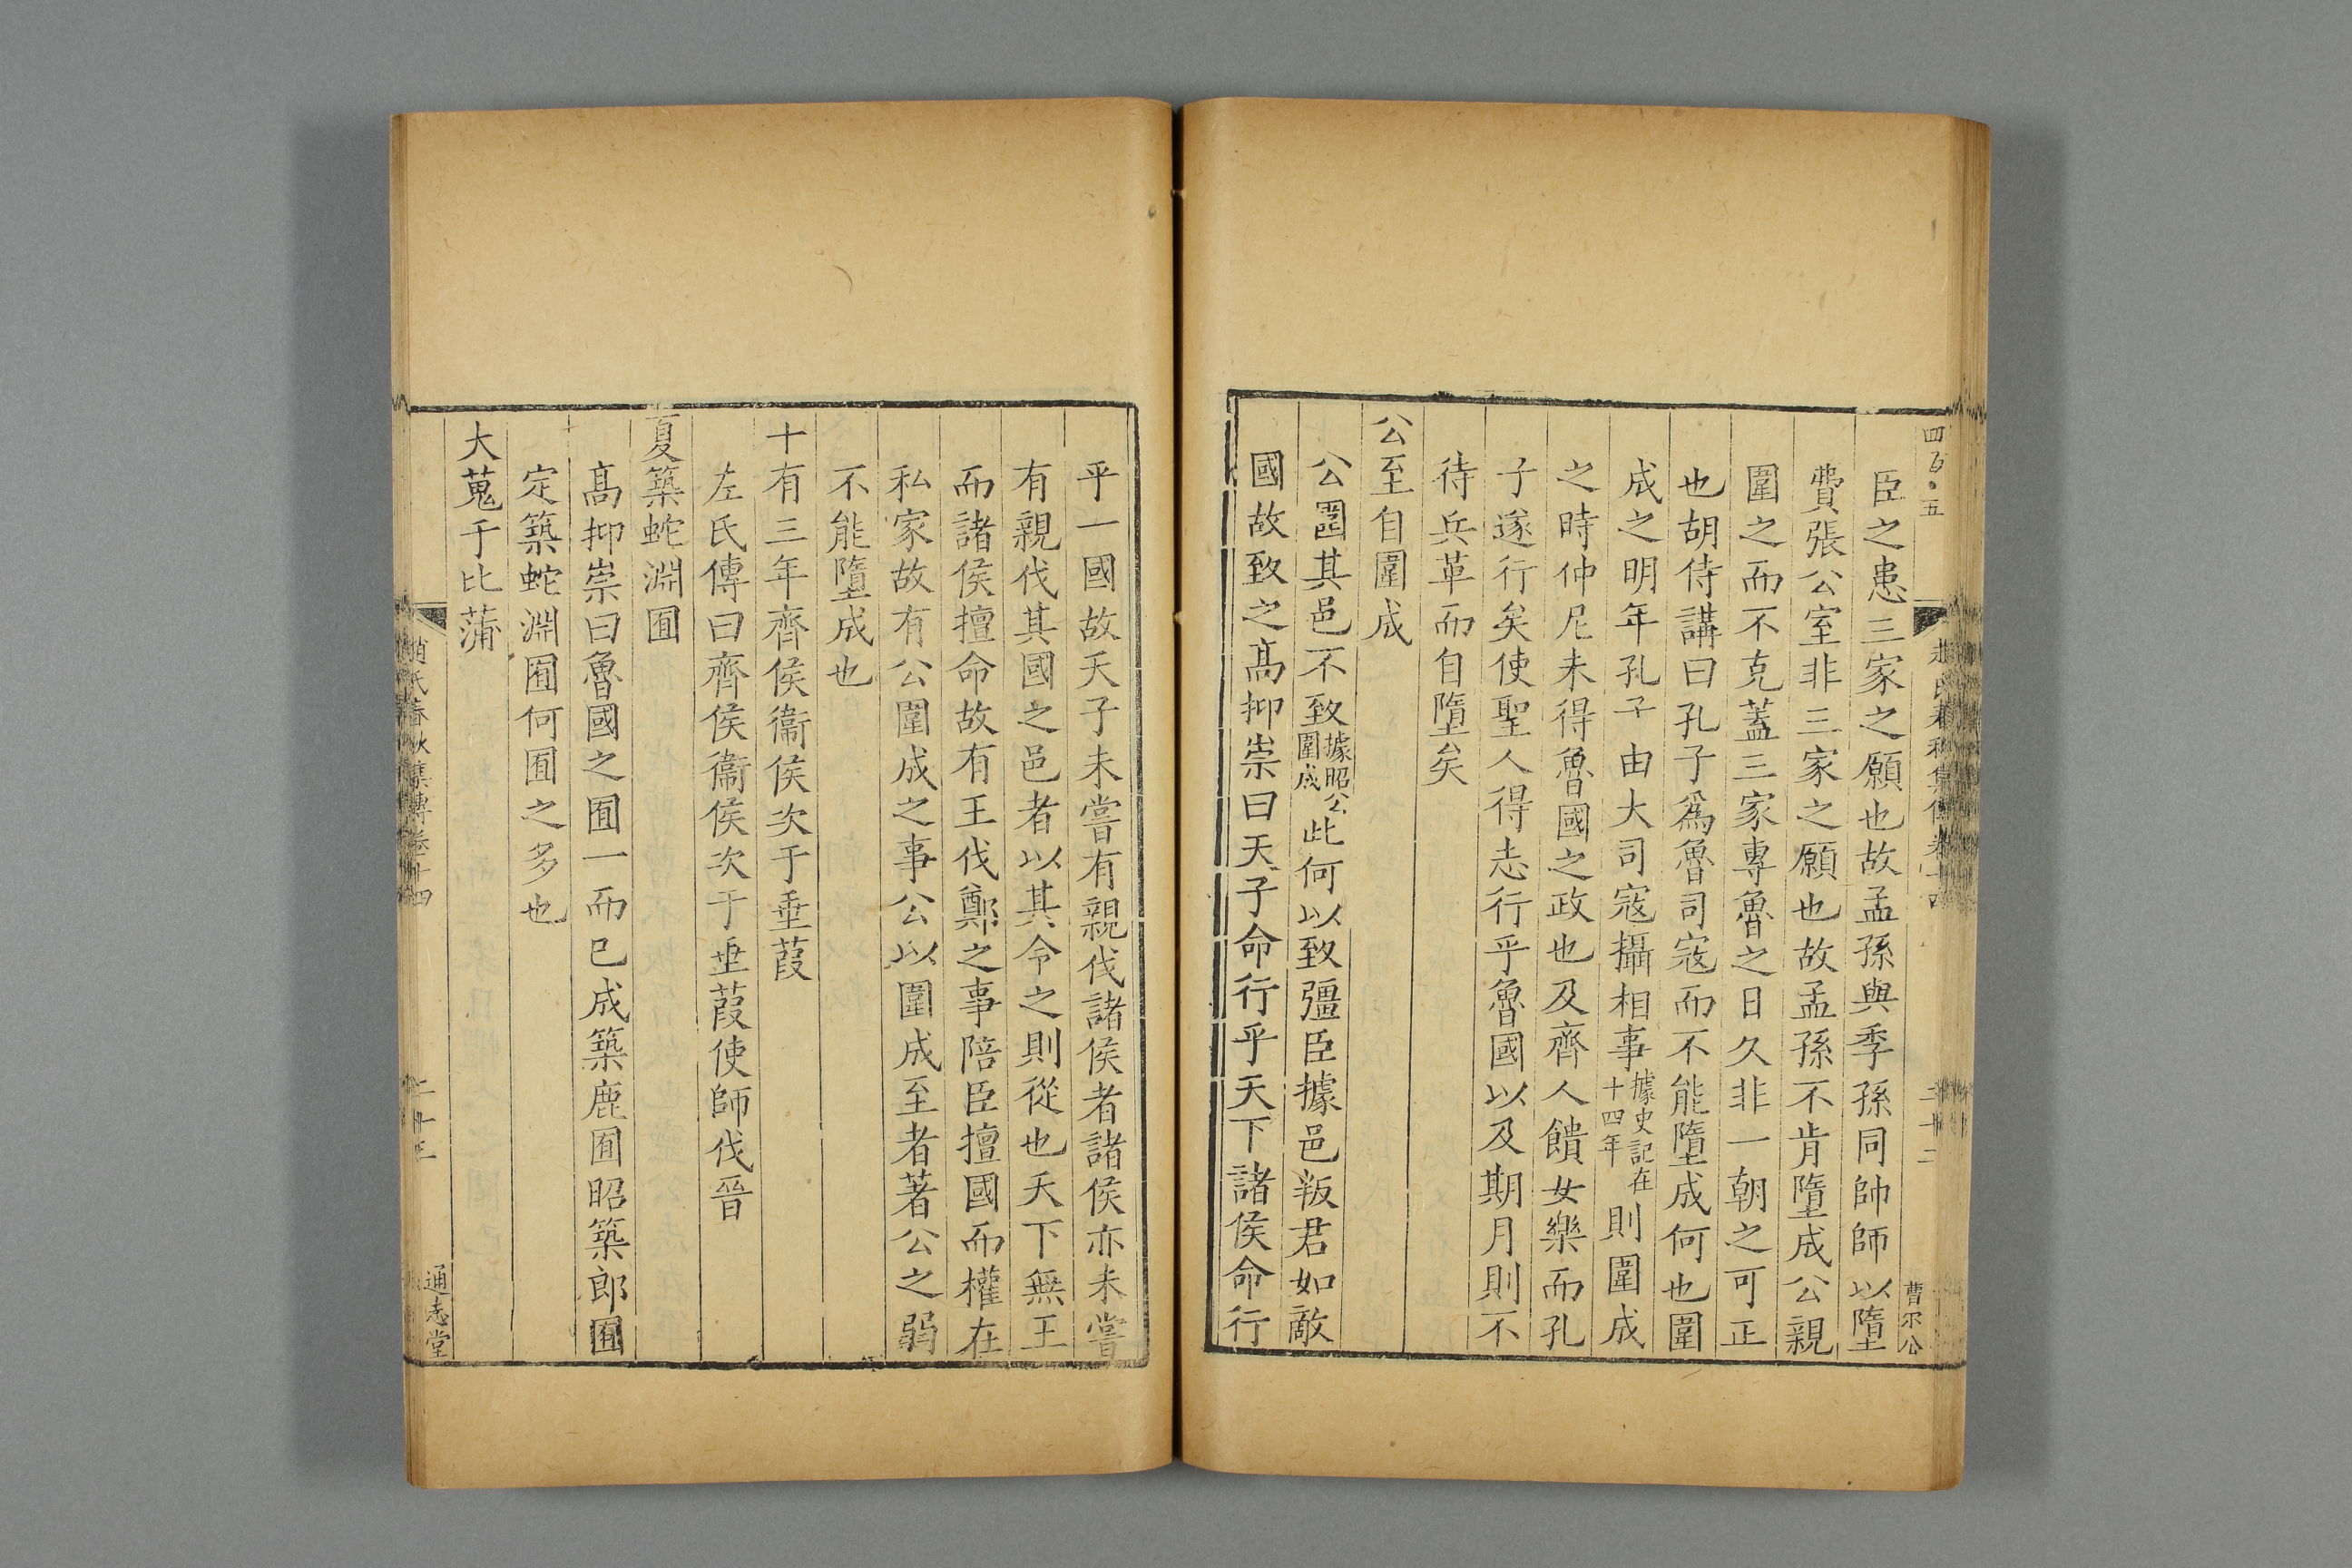 四百五
臣之患三家之願也故孟孫與季孫同帥師以墮
費張公室非三家之願也故孟孫不肯墮成公親
圍之而不克蓋三家專魯之日久非一朝之可正
也胡侍講曰孔子為魯司寇而不能墮成何也圍
成之明年孔子由大司寇攝相事據史記在十四年則圍成
之時仲尼未得魯國之政也及齊人饋女樂而孔
子遂行矣使聖人得志行乎魯國以及期月則不
待兵革而自墮矣
公至自圍成
公圍其邑不致據昭公圍成此何以致彊臣據邑叛君如敵
國故致之高抑崇曰天子命行乎天下諸侯命行
乎一國故天子未嘗有親伐諸侯者諸侯亦未嘗
有親伐其國之邑者以其令之則從也天下無王
而諸侯擅命故有王伐鄭之事陪臣擅國而權在
私家故有公圍成之事公以圍成至者著公之弱
不能墮成也
十有三年齊侯衞侯次于垂葭
左氏傳曰齊侯衞侯次于垂葭使師伐晉
夏築蛇淵囿
高抑崇曰魯國之囿一而已成築鹿囿昭築郎囿
定築蛇淵囿何囿之多也
大蒐于比蒲
趙氏春秋集傳卷十四
通志堂